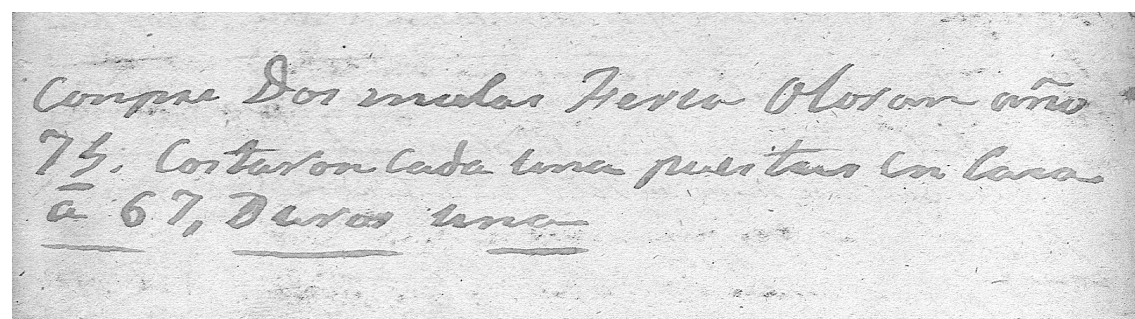 Conpre Dos mulas Feria Oloron año
75. Costaron Cada una puestas en Casa
a 67,, Duros una